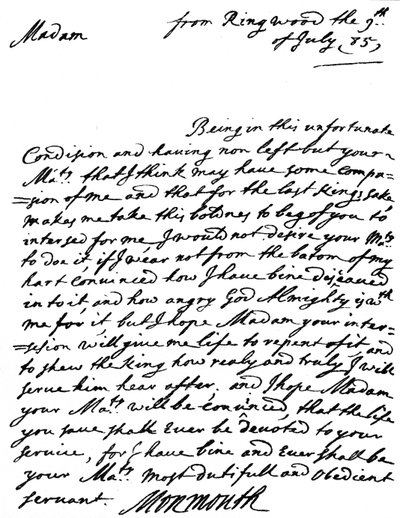 from Ringwood the 9th
Madam of July (85)
Being in this unfortunate
Condision and having non left but your
Ma:ty that I think may have some compa-
=sion of me and that for the last Kings sake
makes me take this boldnes to beg of you to
intersed for me, I would not desire your Ma:ty
to doe it, if I wear not from the botom of my
hart convinced how I have bine deseaved
in to it, and how angry God Almighty is wth
me for it, but I hope Madam your inter-
=sesion will give me life to repent of it, and
to shew the King how realy and truly I will
serve him hear after, and I hope Madam
your Ma:ty will be convinced, that the life
you save shall Ever be devoted to your
servise, for I have bine and Ever shall be
your Ma:ty's most dutifull and obedient
servant. Monmouth